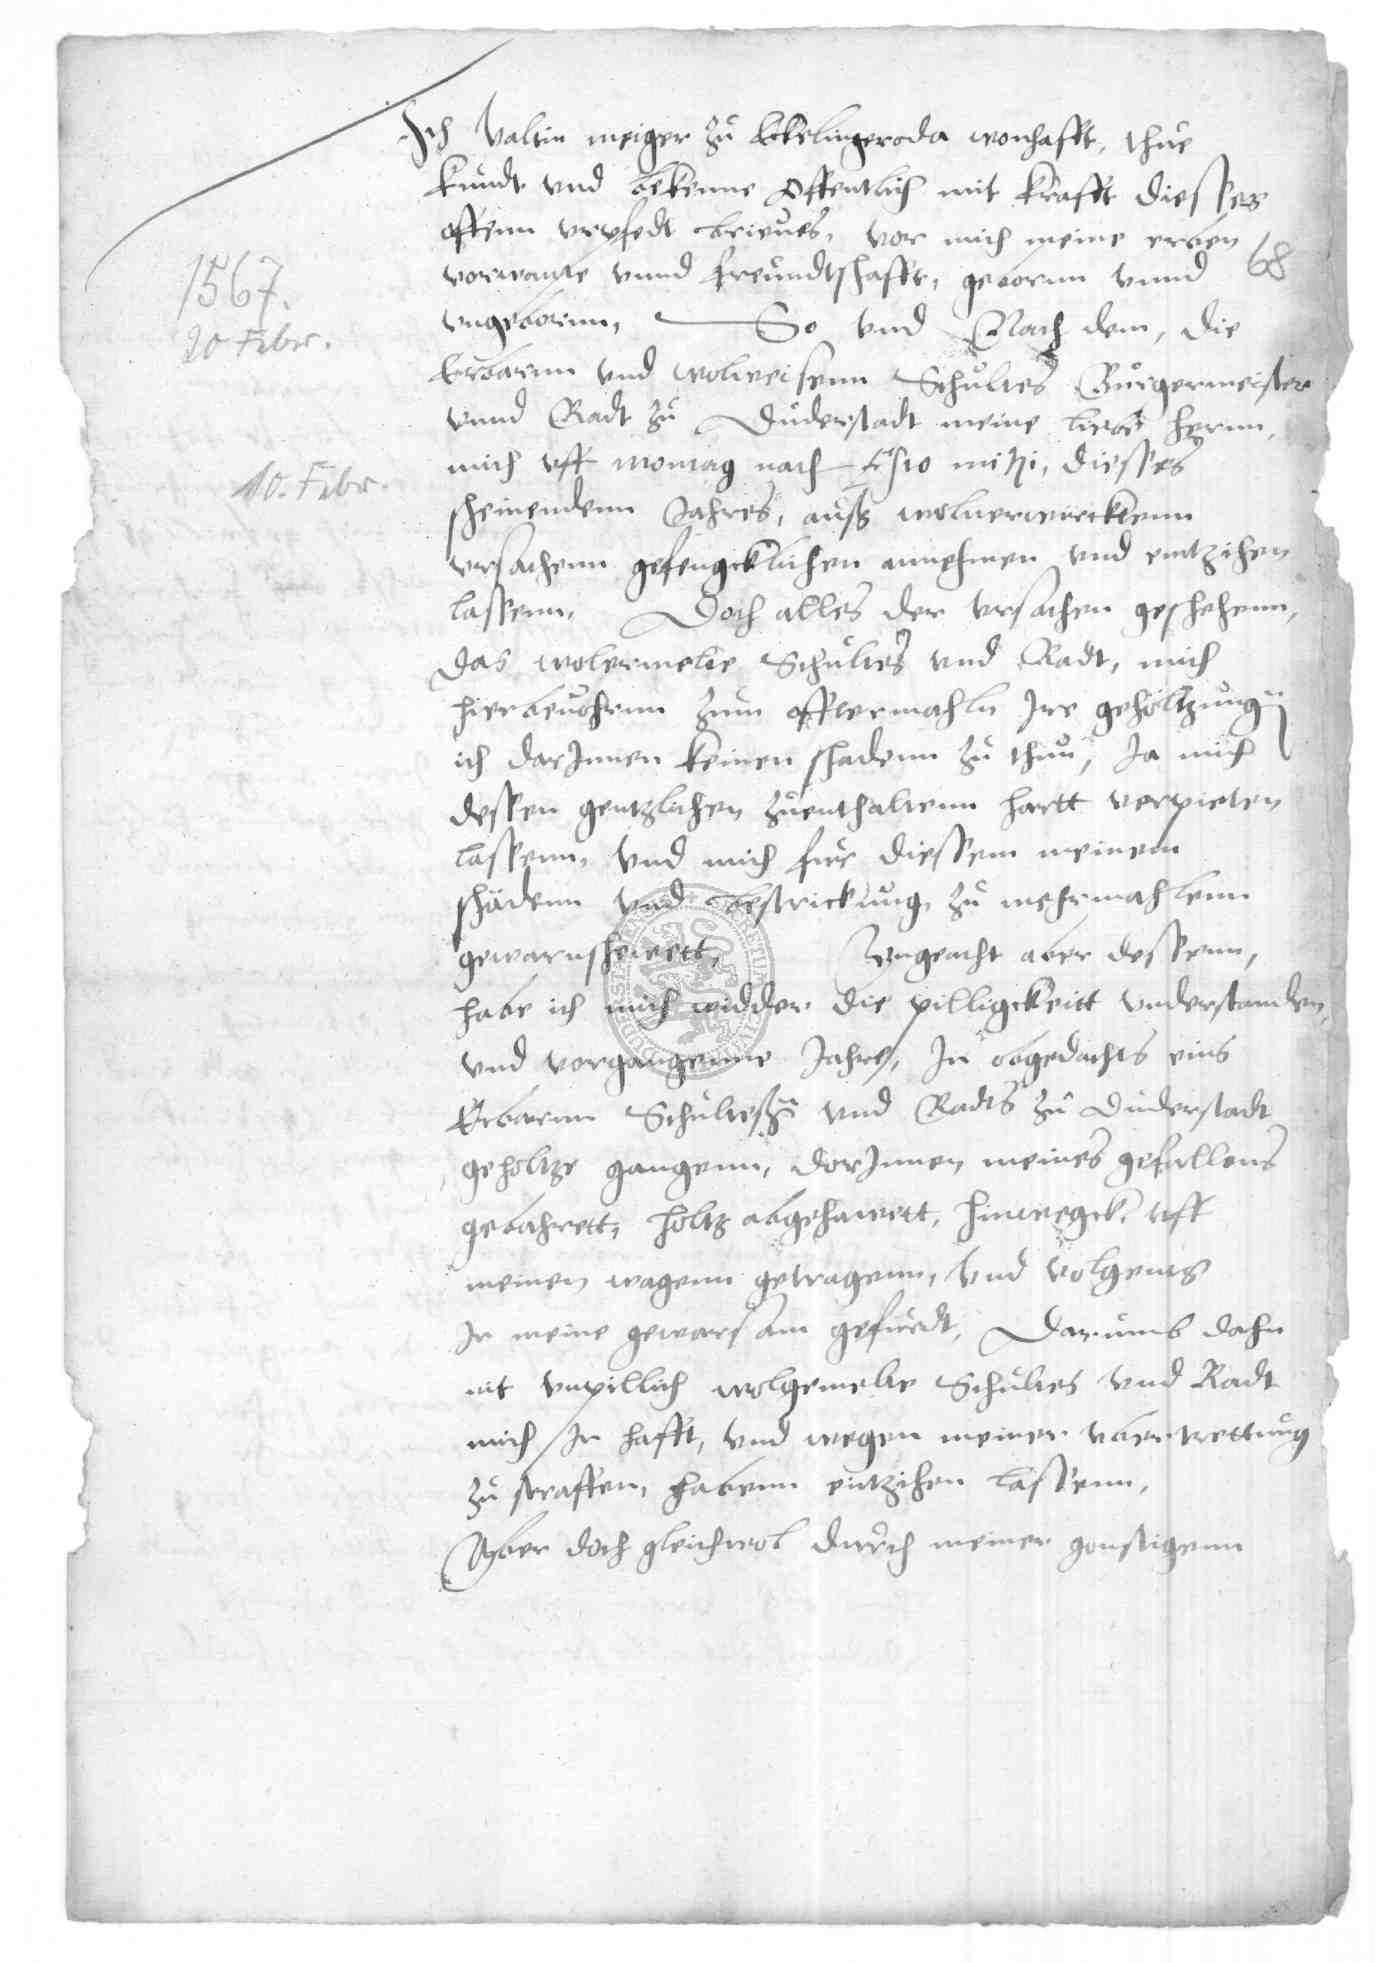 Ich Valtin meiger zu Ekelingeroda wonhafft, thue
kundt vnd bekenne offentlich mit krafft diesses
offenn vrpfedt brieues, vor mich meine erben
vorwante vnnd freundtschafft, gebornn vnnd
68
1567.
20 Febr.
vngebornn, So vnd Nach dem, die
Erbarnn vnd wolweisenn Schultes Burgermeister
vnnd Radt zu Duderstadt meine liebe hernn,
mich vff montag nach Esto mihi, diesses
10. Febr.
scheinendenn Jahres, auß woluerwircktenn
vrsachenn gefengcklichen annehmen vnd eintzihen
lassenn, Doch alles der vrsachen geschehenn,
das wolermelte Schultes vnd Radt, mich
hierbeuohrnn zum offtermahln Ire geholtzung
ich darJnnen keinen schadenn zu thun, Ja mich
dessen gentzlichen zuenthaltenn hartt verpieten
lassenn, vnd mich fur diessem meinem
schadenn vnd bestrickung zu mehrmahlenn
gewarnschewett, Vngeacht aber dessenn,
habe ich mich widder die pilligckeitt vnderstanden,
vnd vorgangenne Jahre, In obgedachts eins
Erbarnn Schultesßn vnd Radts zu Duderstadt
geholtze gangenn, dorJnnen meines gefallens
gebahrett, holtz abgehawett, hinwegck vff
meinen wagenn getragenn, vnd volgents
In meine gewarsam gefurdt, Darumb dahn
nit vnpillich wolgemelte Schultes vnd Radt
mich In hafft, vnd wegen meiner vbertrettung
zu straffen, habenn eintzihen lassenn,
Aber doch gleichwol durch meiner gonstigenn